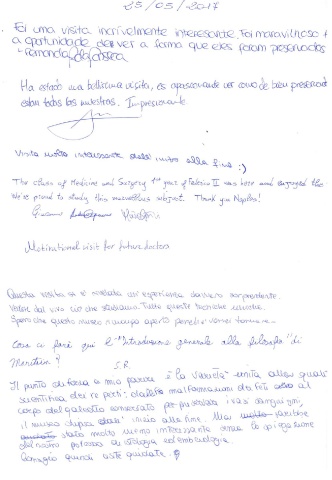 25/05/2017
Foi uma visita incrivelmente interessante. Foi maravilhoso
a oportunidade de ver a forma que eles foram preservados
Ha estado una bellissima visita, es apasionante ver como de bien preservado
estan todas las muestras. Impresionante
Visita molto interessante dall' inizio alla fine :)
The class of Medicine and Surgery 1st year of Federico II was here and enjoyed the
We're proud to study this marvellous subject. Thank you Naples!
Motivational visit for future doctors
Questa visita si è rivelata un'esperienza davvero sorprendente.
Vedere dal vivo ciò che studiamo. Tutte queste tecniche
Spero che questo museo rimanga aperto perché vorrei tornare
Cosa ci fare qui l'"Introduzione generale alla filosofia" di
Maritain?
S.R.
Il punto di forza a mio parere è la varietà unita alla qualità
scientifica dei reperti, dalle malformazioni dei feti al
corpo del galeotto conservato per
il museo inizio alla fine. Ma sarebbe
stato molto meno interessante senza la spiegazione
del nostro professore di istologia ed embriologia.
Consiglio quindi visite guidate.